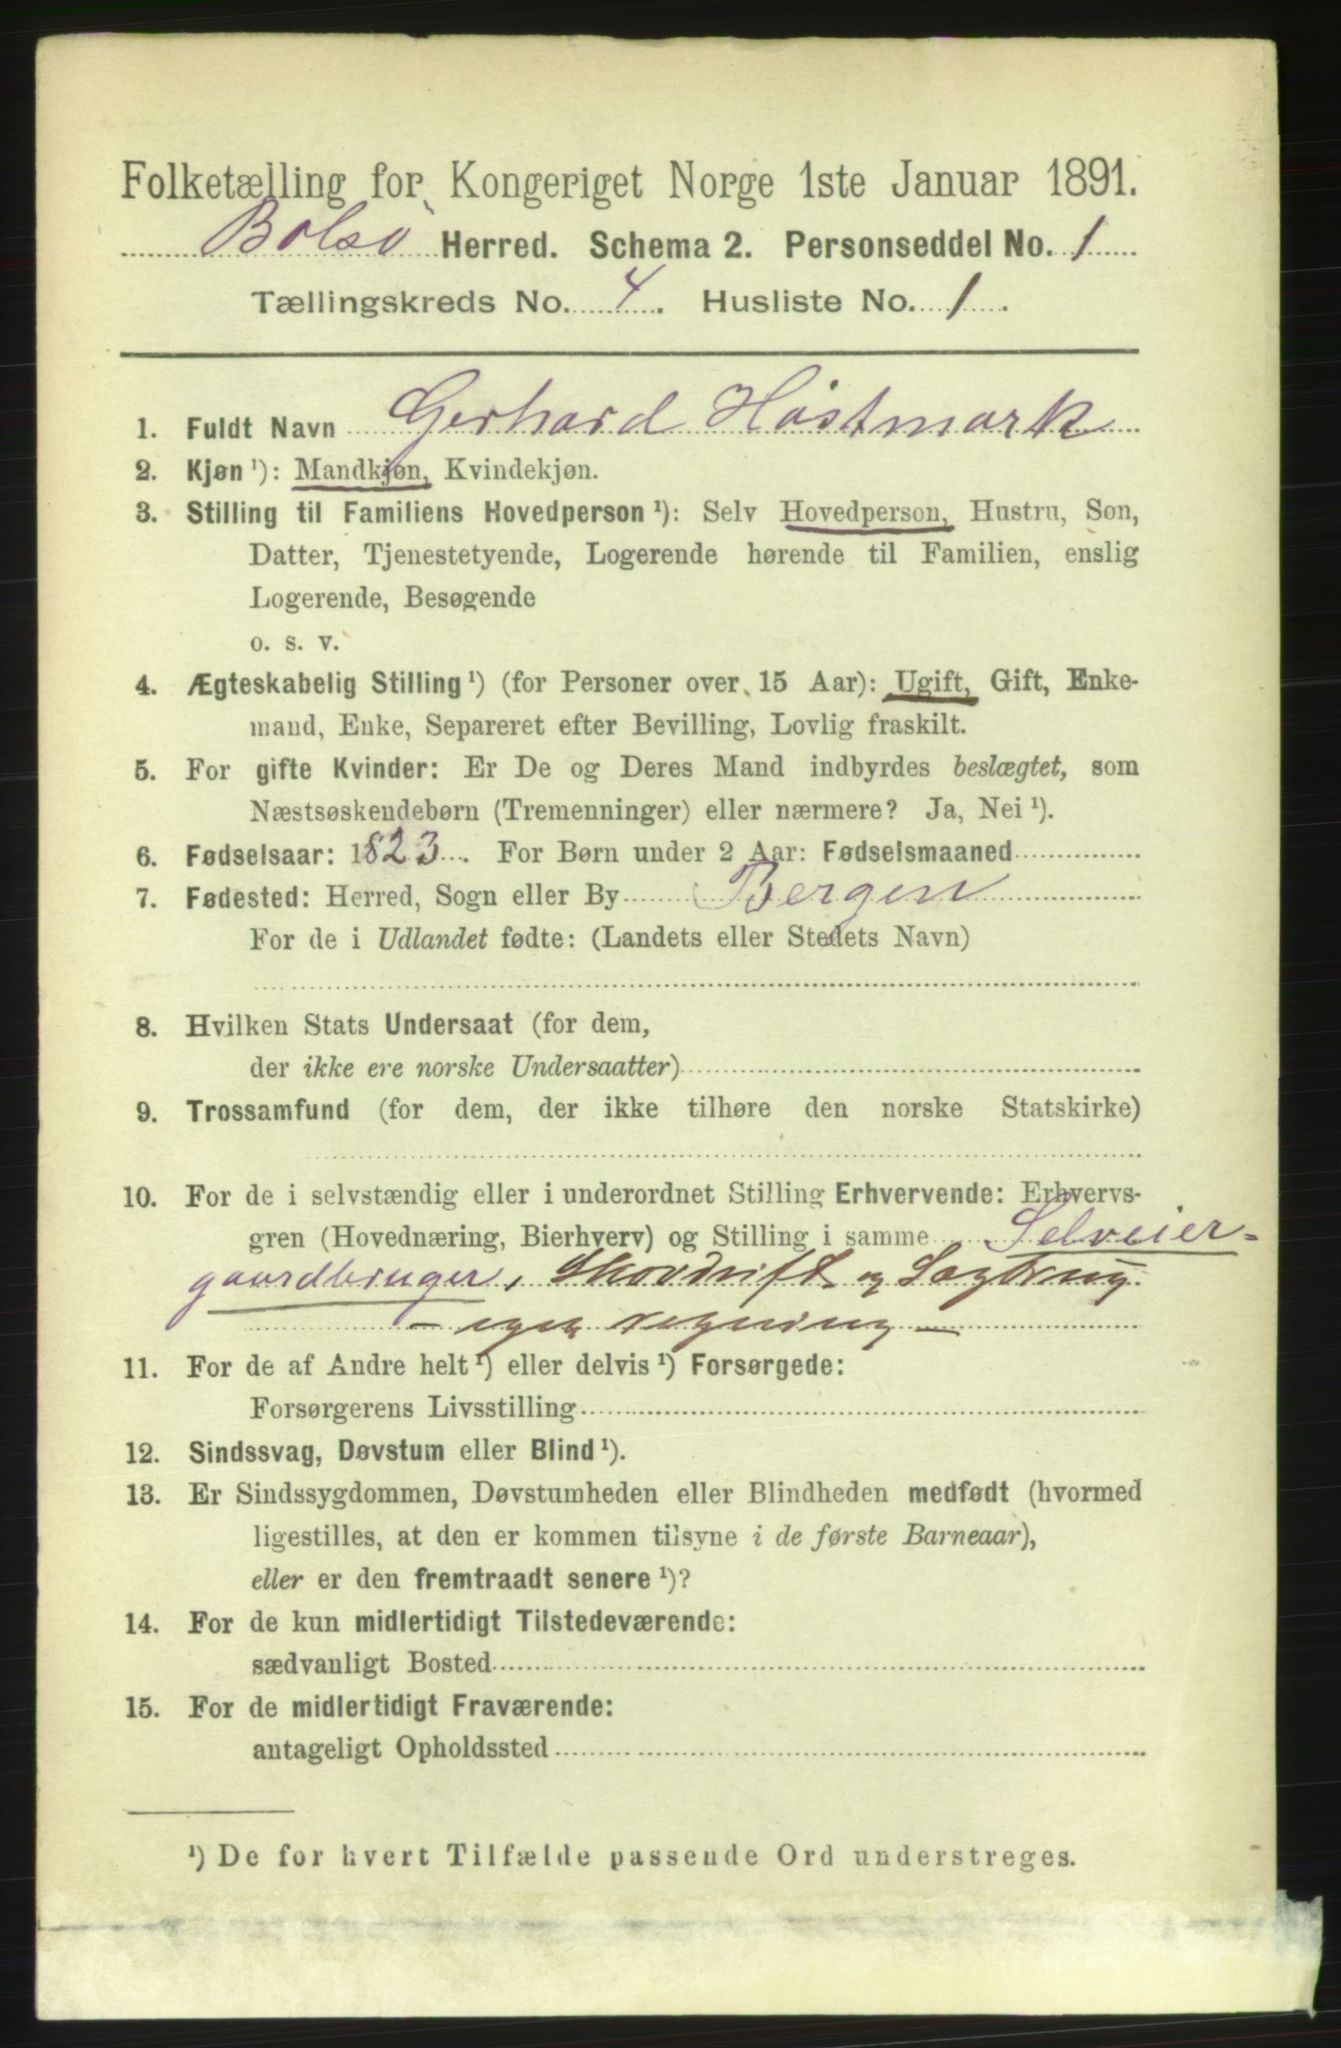 Folketælling for Kongeriget Norge 1ste Januar 1891.
Bolsø Herred. Schema 2. Personseddel No. 1
Tællingskreds No. 4. Husliste No. 1.
1. Fuldt Navn Gerhard Høstmark
2. Kjøn ¹): Mandkjøn, Kvindekjøn.
3. Stilling til Familiens Hovedperson ¹): Selv Hovedperson, Hustru, Søn,
Datter, Tjenestetyende, Logerende hørende til Familien, enslig
Logerende, Besøgende
o. s. v.
4. Ægteskabelig Stilling ¹) (for Personer over 15 Aar): Ugift, Gift, Enke-
mand, Enke, Separeret efter Bevilling, Lovlig fraskilt.
5. For gifte Kvinder: Er De og Deres Mand indbyrdes beslægtet, som
Næstsøskendebørn (Tremenninger) eller nærmere? Ja, Nei ¹).
6. Fødselsaar: 1823. For Børn under 2 Aar: Fødselsmaaned
7. Fødested: Herred, Sogn eller By Bergen
For de i Udlandet fødte: (Landets eller Stedets Navn)
8. Hvilken Stats Undersaat (for dem,
der ikke ere norske Undersaatter)
9. Trossamfund (for dem, der ikke tilhøre den norske Statskirke)
10. For de i selvstændig eller i underordnet Stilling Erhvervende: Erhvervs-
gren (Hovednæring, Bierhverv) og Stilling i samme Selveier-
gaardbruger, Skovdrift og Sagbrug.
- egen regning -
11. For de af Andre helt ¹) eller delvis ¹) Forsørgede:
Forsørgerens Livsstilling
12. Sindssvag, Døvstum eller Blind ¹).
13. Er Sindssygdommen, Døvstumheden eller Blindheden medfødt (hvormed
ligestilles, at den er kommen tilsyne i de første Barneaar),
eller er den fremtraadt senere ¹)?
14. For de kun midlertidigt Tilstedeværende:
sædvanligt Bosted
15. For de midlertidigt Fraværende:
antageligt Opholdssted
¹) De for hvert Tilfælde passende Ord understreges.